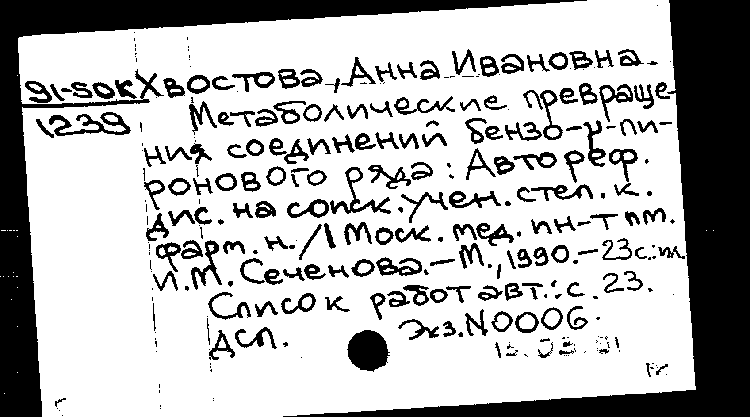 91-50K Хвостова, Анна Ивановна.
1239 Метаболические превраще-
ния соединений бензо-γ-пи-
ронового ряда : Автореф.
дис. на соиск. учен. степ. к.
фарм. н. / 1 Моск. мед. ин-т им.
И.М. Сеченова. – М., 1990. – 23 с.: ил.
Список работ авт.: с. 23.
ДСП. Экз. N0006.